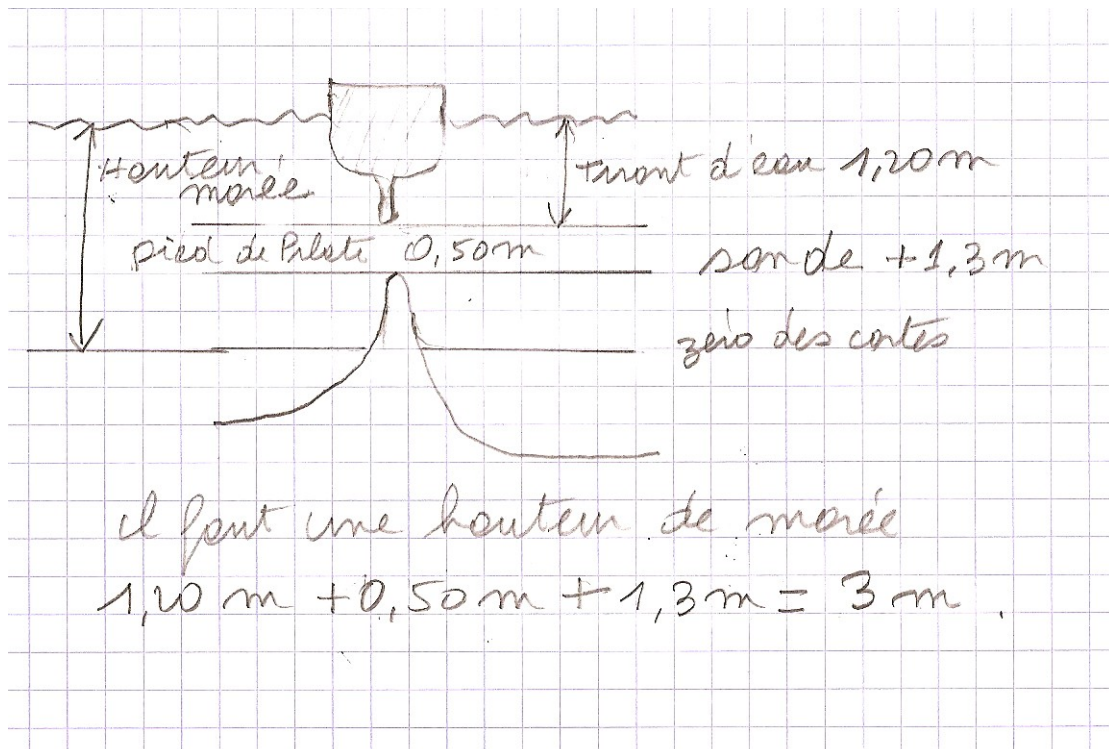 Hauteur
marée
Tirant d'eau 1,20 m
pied de Pilote 0,50 m
sonde +1,3 m
zéro des cartes
il faut une hauteur de marée
1,20 m + 0,50 m + 1,3 m = 3 m.